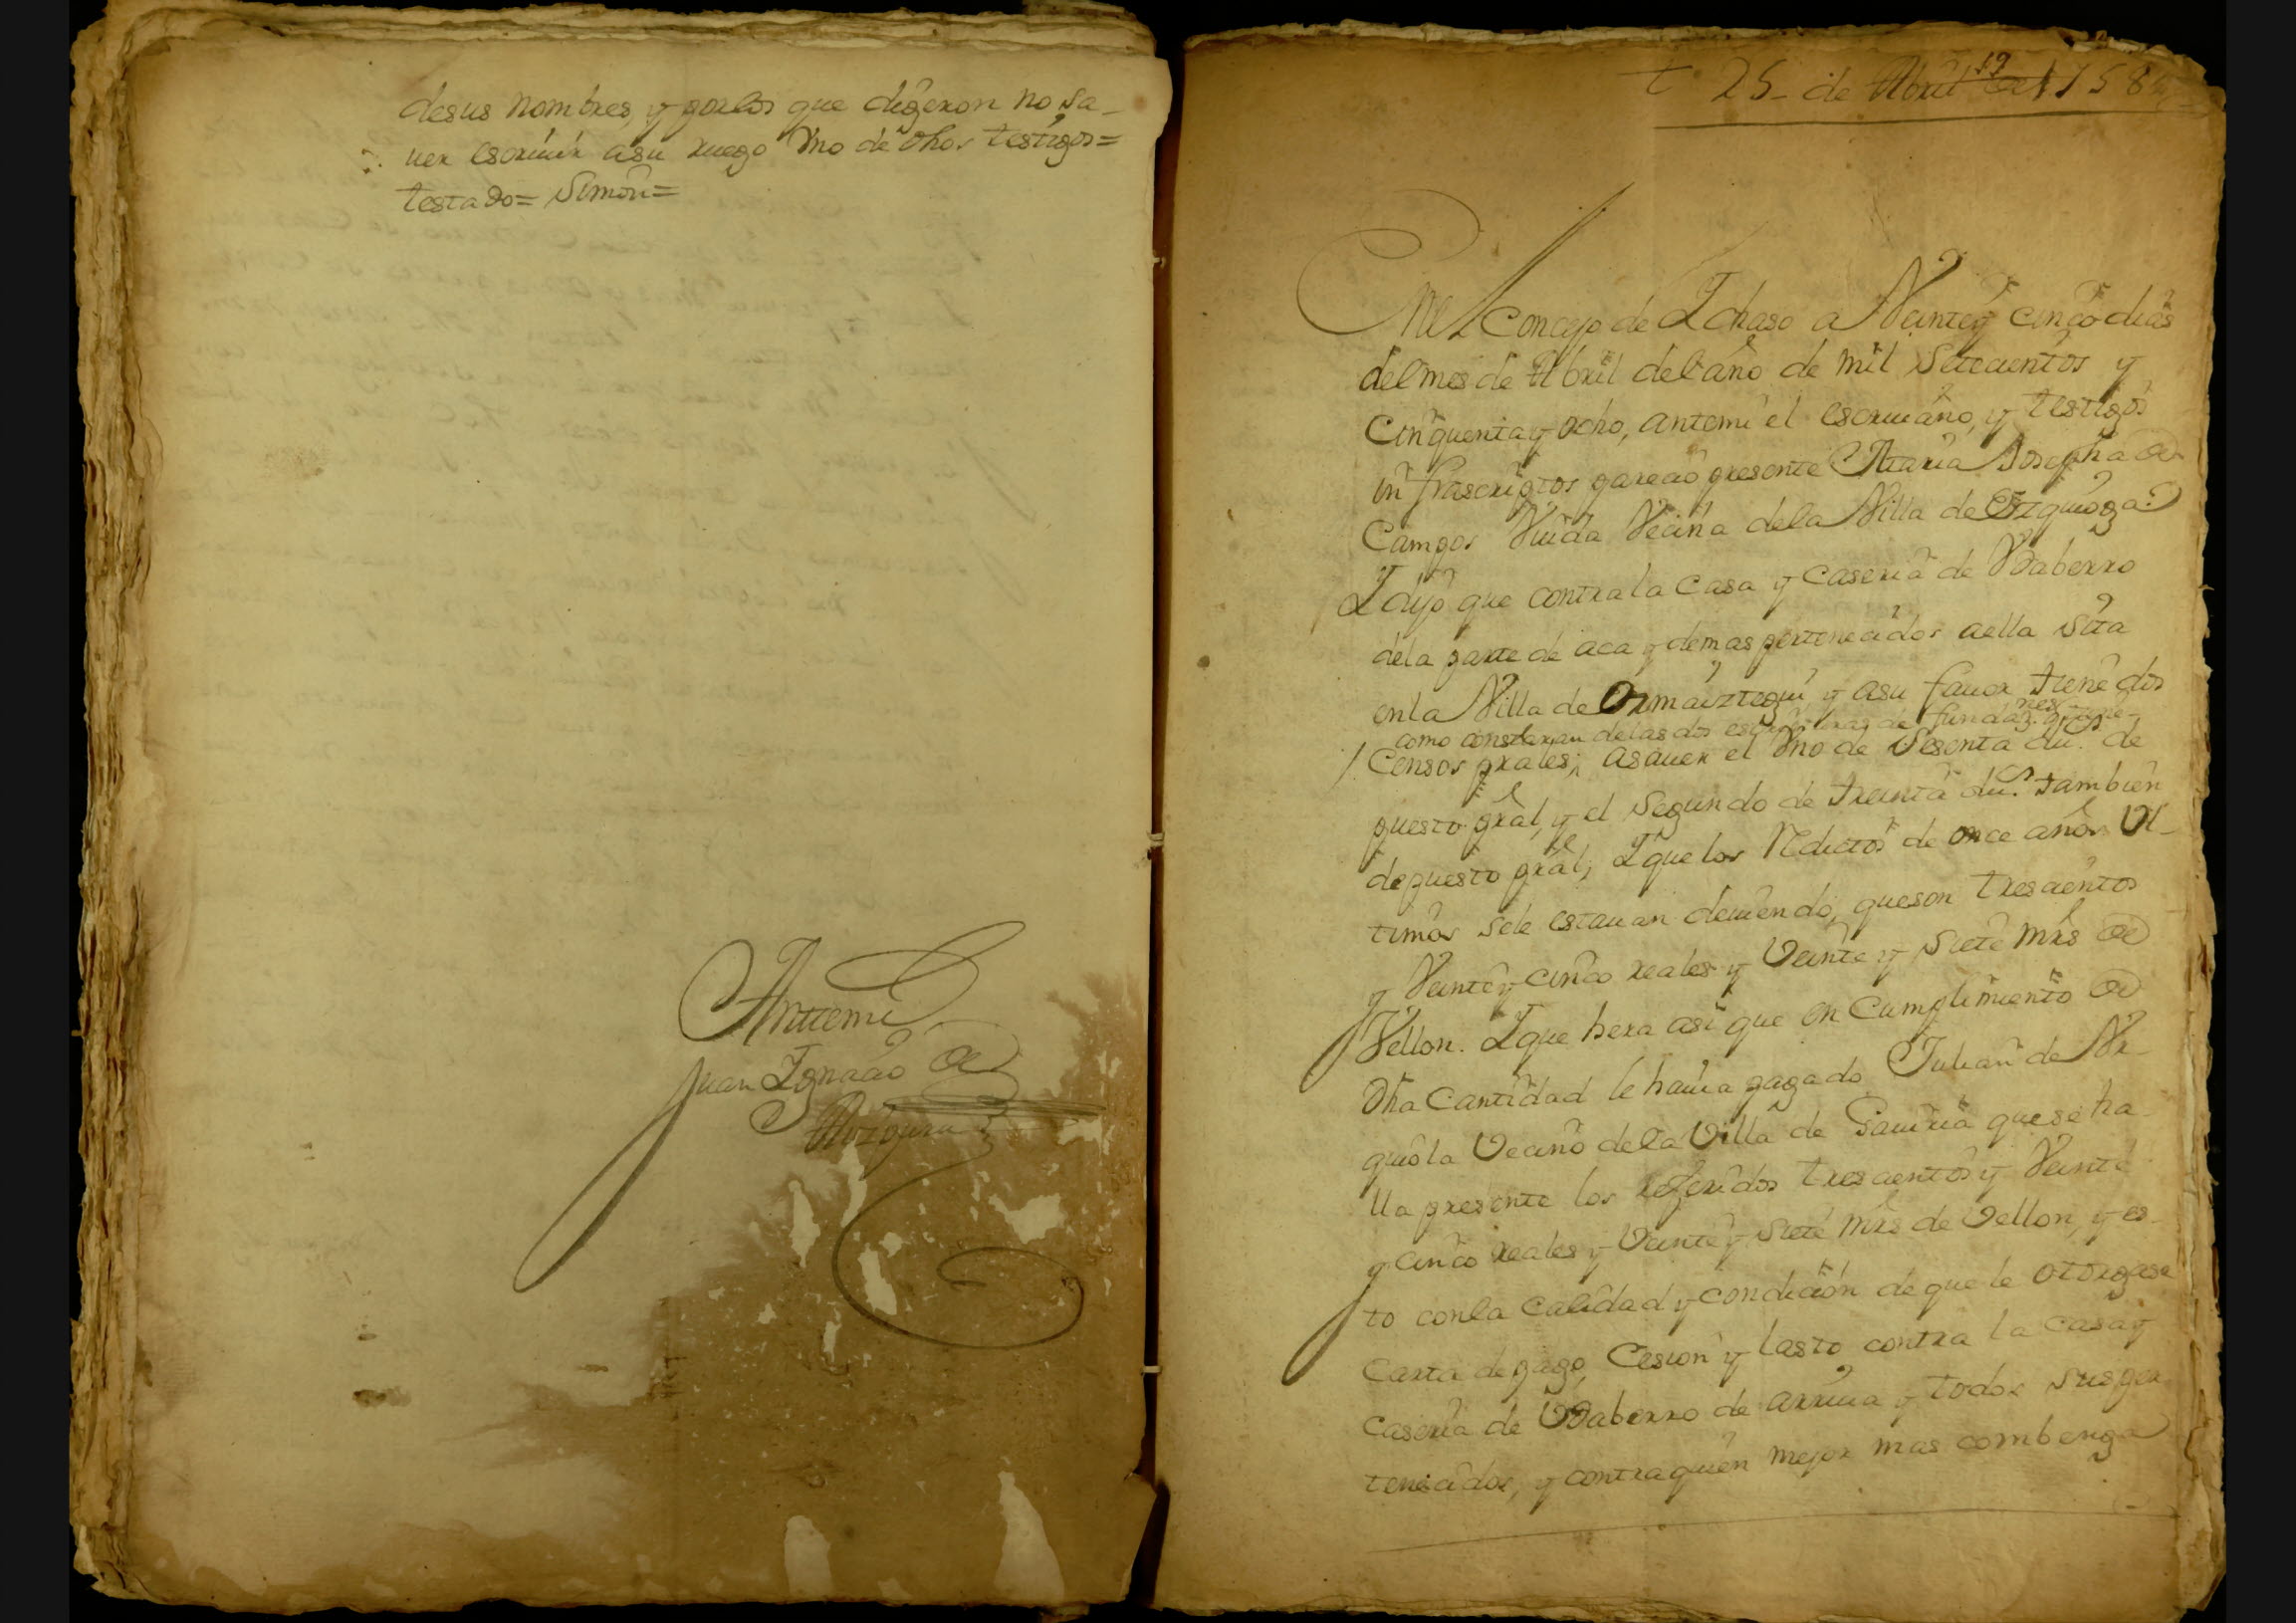 desus nombres, y porlos que digeron no sa-
uer escriuir asu ruego Vno de dhos testigos=
testado= Simon=
Anttemi
Juan Ignacio de
t 25 - de Abril de 1758
En el Concejo de Ichaso a Veinte y cinco dias
del mes de Abril del año de mil Setecientos y
Cinquenta y ocho, antemi el escriuano, y testigos
infrascriptos parecio presente Maria Josepha de
Campos Viuda Vecina dela Villa de Ezquioga:
I dijo que contra la Casa y Caseria de Vdaberro
dela parte de aca y demas pertenecidos aella Sita
enla Villa de Ormaiztegui, y asu fauor tiene dos
como constaran delas dos escripturas de fundaz.nes
/. Censos prales; asauer el Vno de Sesenta du.s de
puesto pral, y el Segundo de treinta du.s tambien
de puesto pral; I que los Redictos de once años Vl-
timos sele estauan deuiendo, queson trescientos
y Veinte y cinco reales y Veinte y siete mrs de
Vellon. I que hera asi que en Cumplimiento de
dha Cantidad le hauia pagado Julian de Vr-
quiola Vecino dela Villa de Gauiria que se ha-
lla presente los referidos trescientos y Veinte
y cinco reales y Veinte y siete mrs de Vellon, y es-
to conla Calidad y condicion de que le otorgase
Carta de pago, Cesion y lasto contra la casa y
Caseria de Vdaberro de arriua y todos sus per-
tenecidos, y contra quien mejor mas combenga